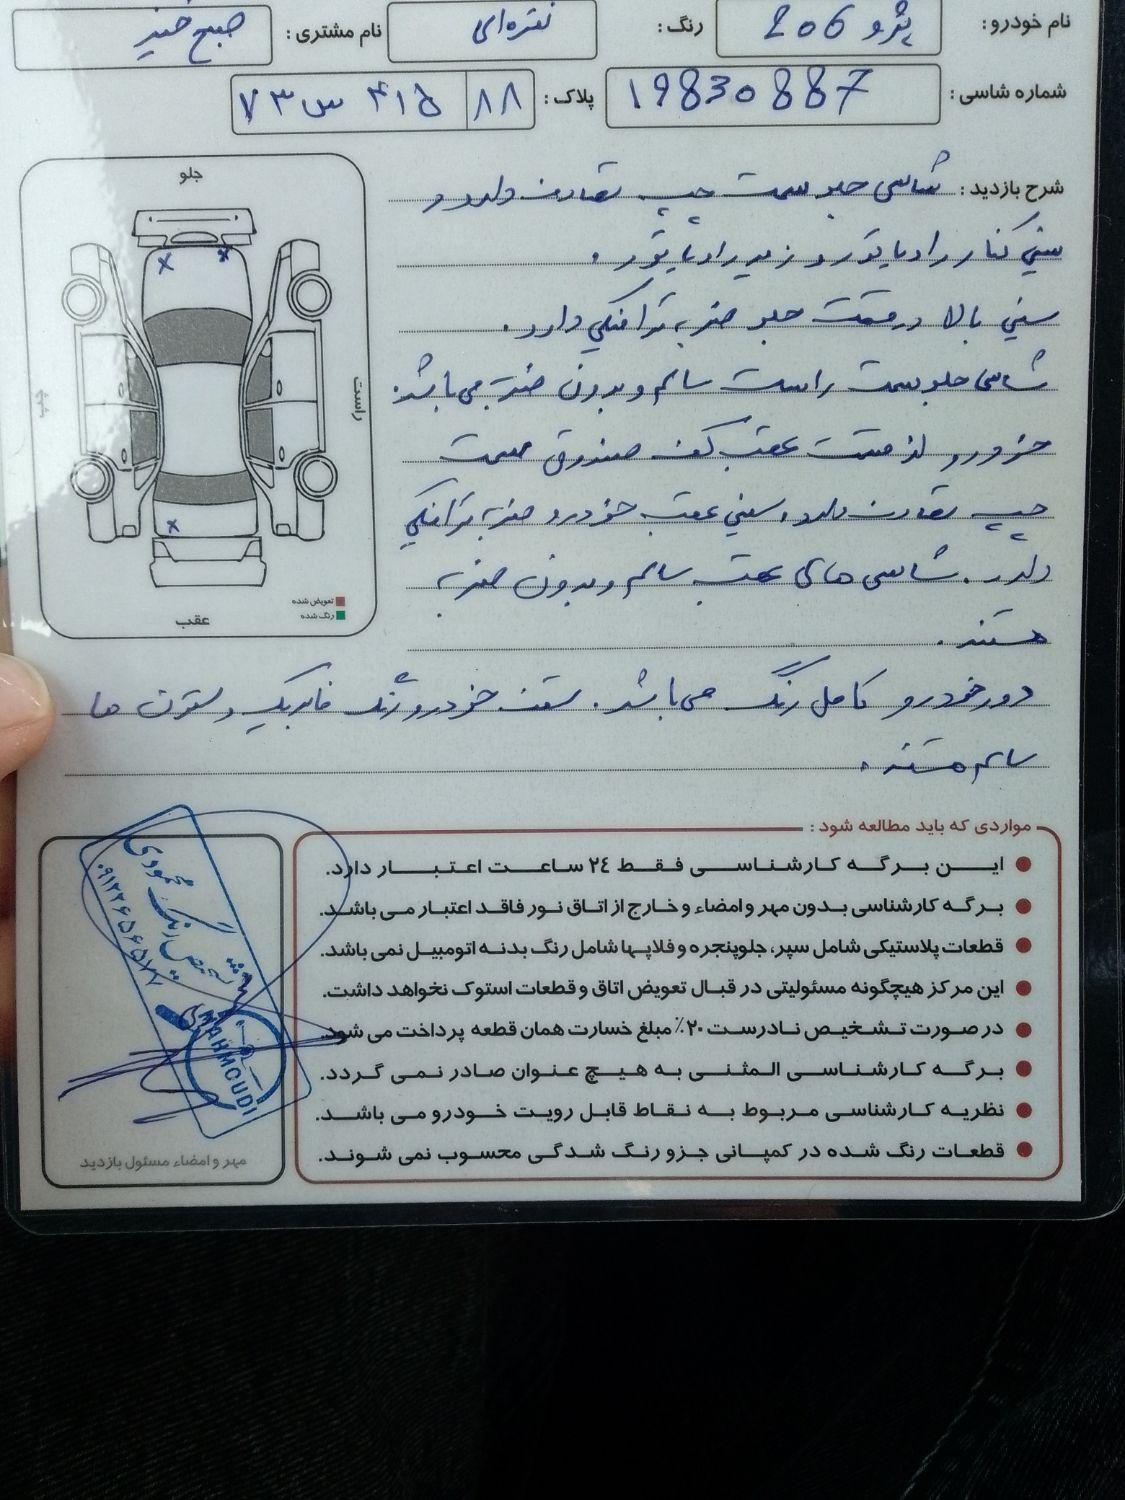 نام خودرو: پژو 206 رنگ: نقره‌ای نام مشتری: صبح خیز
شماره شاسی: 19830887 پلاک: ۸۸ ۴۱۵ س ۷۳
شرح بازدید: شاسی جلو سمت چپ تصادف دارد و
سینی کنار رادیاتور و زیر رادیاتور.
سینی بالا در قسمت جلو ضربه ترافیکی دارد.
شاسی جلو سمت راست سالم و بدون ضربه می باشد.
خودرو از قسمت عقب کف صندوق سمت
چپ تصادف دارد، سینی عقب خودرو ضربه ترافیکی
دارد. شاسی های عقب سالم و بدون ضربه
هستند.
دور خودرو کامل رنگ می باشد. سقف خودرو رنگ فابریک و ستون ها
سالم هستند.
جلو
چپ
راست
عقب
تعویض شده
رنگ شده
مواردی که باید مطالعه شود:
ایـن برگـه کارشناسـی فـقـط ٢٤ ساعـت اعتـبـار دارد.
برگه کارشناسی بدون مهر و امضاء و خارج از اتاق نور فاقد اعتبار می باشد.
قطعات پلاستیکی شامل سپر، جلوپنجره و فلاپها شامل رنگ بدنه اتومبیل نمی باشد.
این مرکز هیچگونه مسئولیتی در قبال تعویض اتاق و قطعات استوک نخواهد داشت.
در صورت تشخیص نادرست ۲۰٪ مبلغ خسارت همان قطعه پرداخت می شود.
برگـه کارشناسـی المثنـی به هیـچ عنـوان صادر نمـی گـردد.
نظریه کارشناسی مربوط به نقـاط قابل رویت خـودرو می باشـد.
قطعـات رنگ شده در کمپـانی جـزو رنـگ شـدگـی محسـوب نمی شونـد.
تشخیص رنگ محمودی
۰۹۱۲۲۶۵۶۵۷۷
MAHMOUDI
مهر و امضاء مسئول بازدید